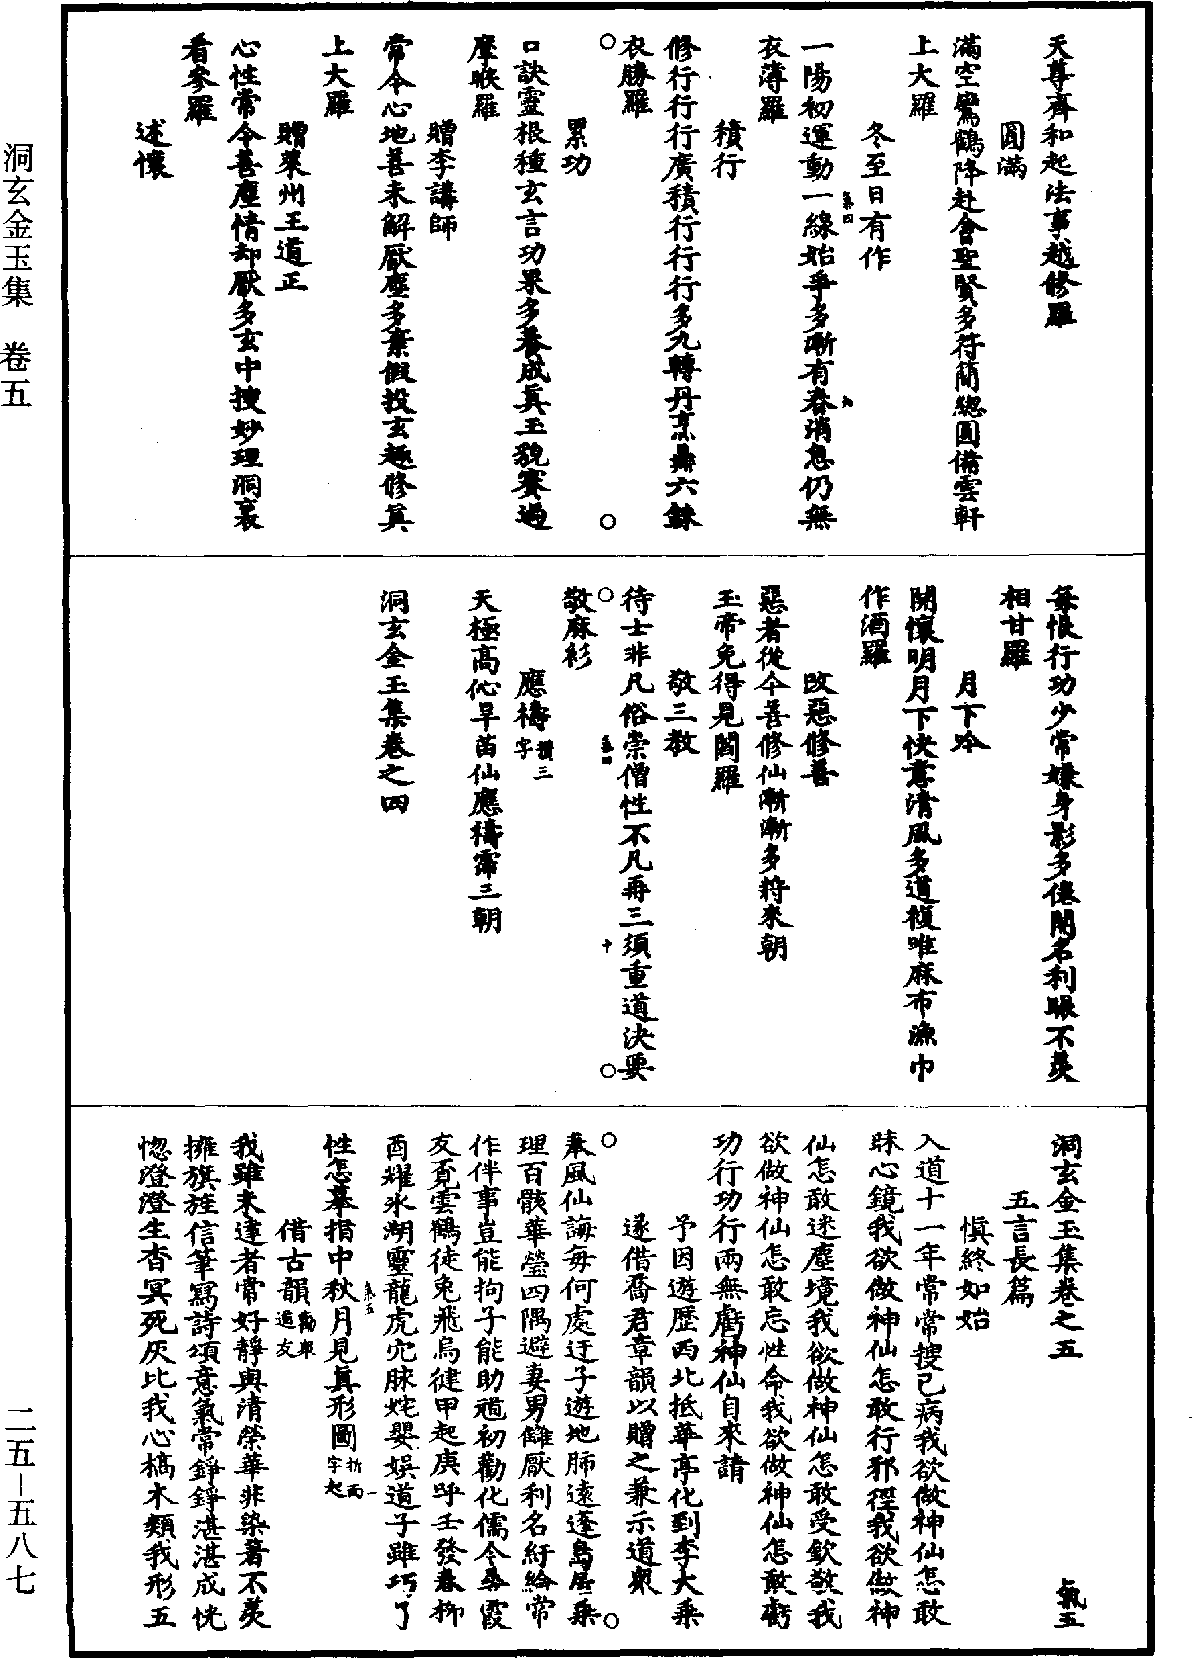 洞玄金玉集　卷五
天尊齊和起法事越修羅
圓滿
滿空鸞鶴降赴會聖賢多符簡總圓備雲軒
上大羅
冬至日有作
一陽初運動一線始爭多漸有春消息仍無
衣薄羅
積行
修行行行廣積行行行多九轉丹烹鼎六銖
衣勝羅
累功
口訣靈根種玄言功果多養成眞玉貌賽過
摩睺羅
贈李講師
常令心地善未解厭塵多棄假投玄趣修眞
上大羅
贈萊州王道正
心性常令善塵情却厭多玄中搜妙理洞裏
看參羅
述懷
每恨行功少常嫌身影多倦聞名利賑不羨
相甘羅
月下吟
開懷明月下快意清風多道複唯麻布漁巾
作酒羅
改惡修善
惡者從今善修仙漸漸多將來朝
玉帝免得見閻羅
敬三教
待士非凡俗崇僧性不凡再三須重道決要
敬麻衫
應禱 攢三字
天極高仙早苗仙應禱霈三朝
洞玄金玉集卷之四
洞玄金玉集卷之五　氣五
五言長篇
愼終如始
入道十一年常常搜己病我欲做神仙怎敢
昧心鏡我欲做神仙怎敢行邪徑我欲做神
仙怎敢迷塵境我欲做神仙怎敢受欽敬我
欲做神仙怎敢忘性命我欲做神仙怎敢虧
功行功行兩無虧神仙自來請
予因遊歷西北抵華亭化到李大乘
遂借喬君章韻以贈之兼示道衆
奉風仙誨每何處迂子遊地肺遠蓬島居乘
理百骸華瑩四隅避妻男讎厭利名紆綸常
作伴事豈能拘子能助趙初勸化儒令尋霞
友覓雲鶴徒兔飛烏健甲起庚呼壬發春柳
酉耀氷湖靈龍虎穴脉姹嬰娛道子雖巧了
性怎摹指中秋月見眞形圖 拆西一字起
借古韻 勸衆道友
我雖未達者常好靜與清榮華非染著不羨
擁旗旌信筆寫詩頌意氣常錚錚湛湛成恍
惚澄澄生杳冥死灰比我心槁木類我形五
二五－五八七